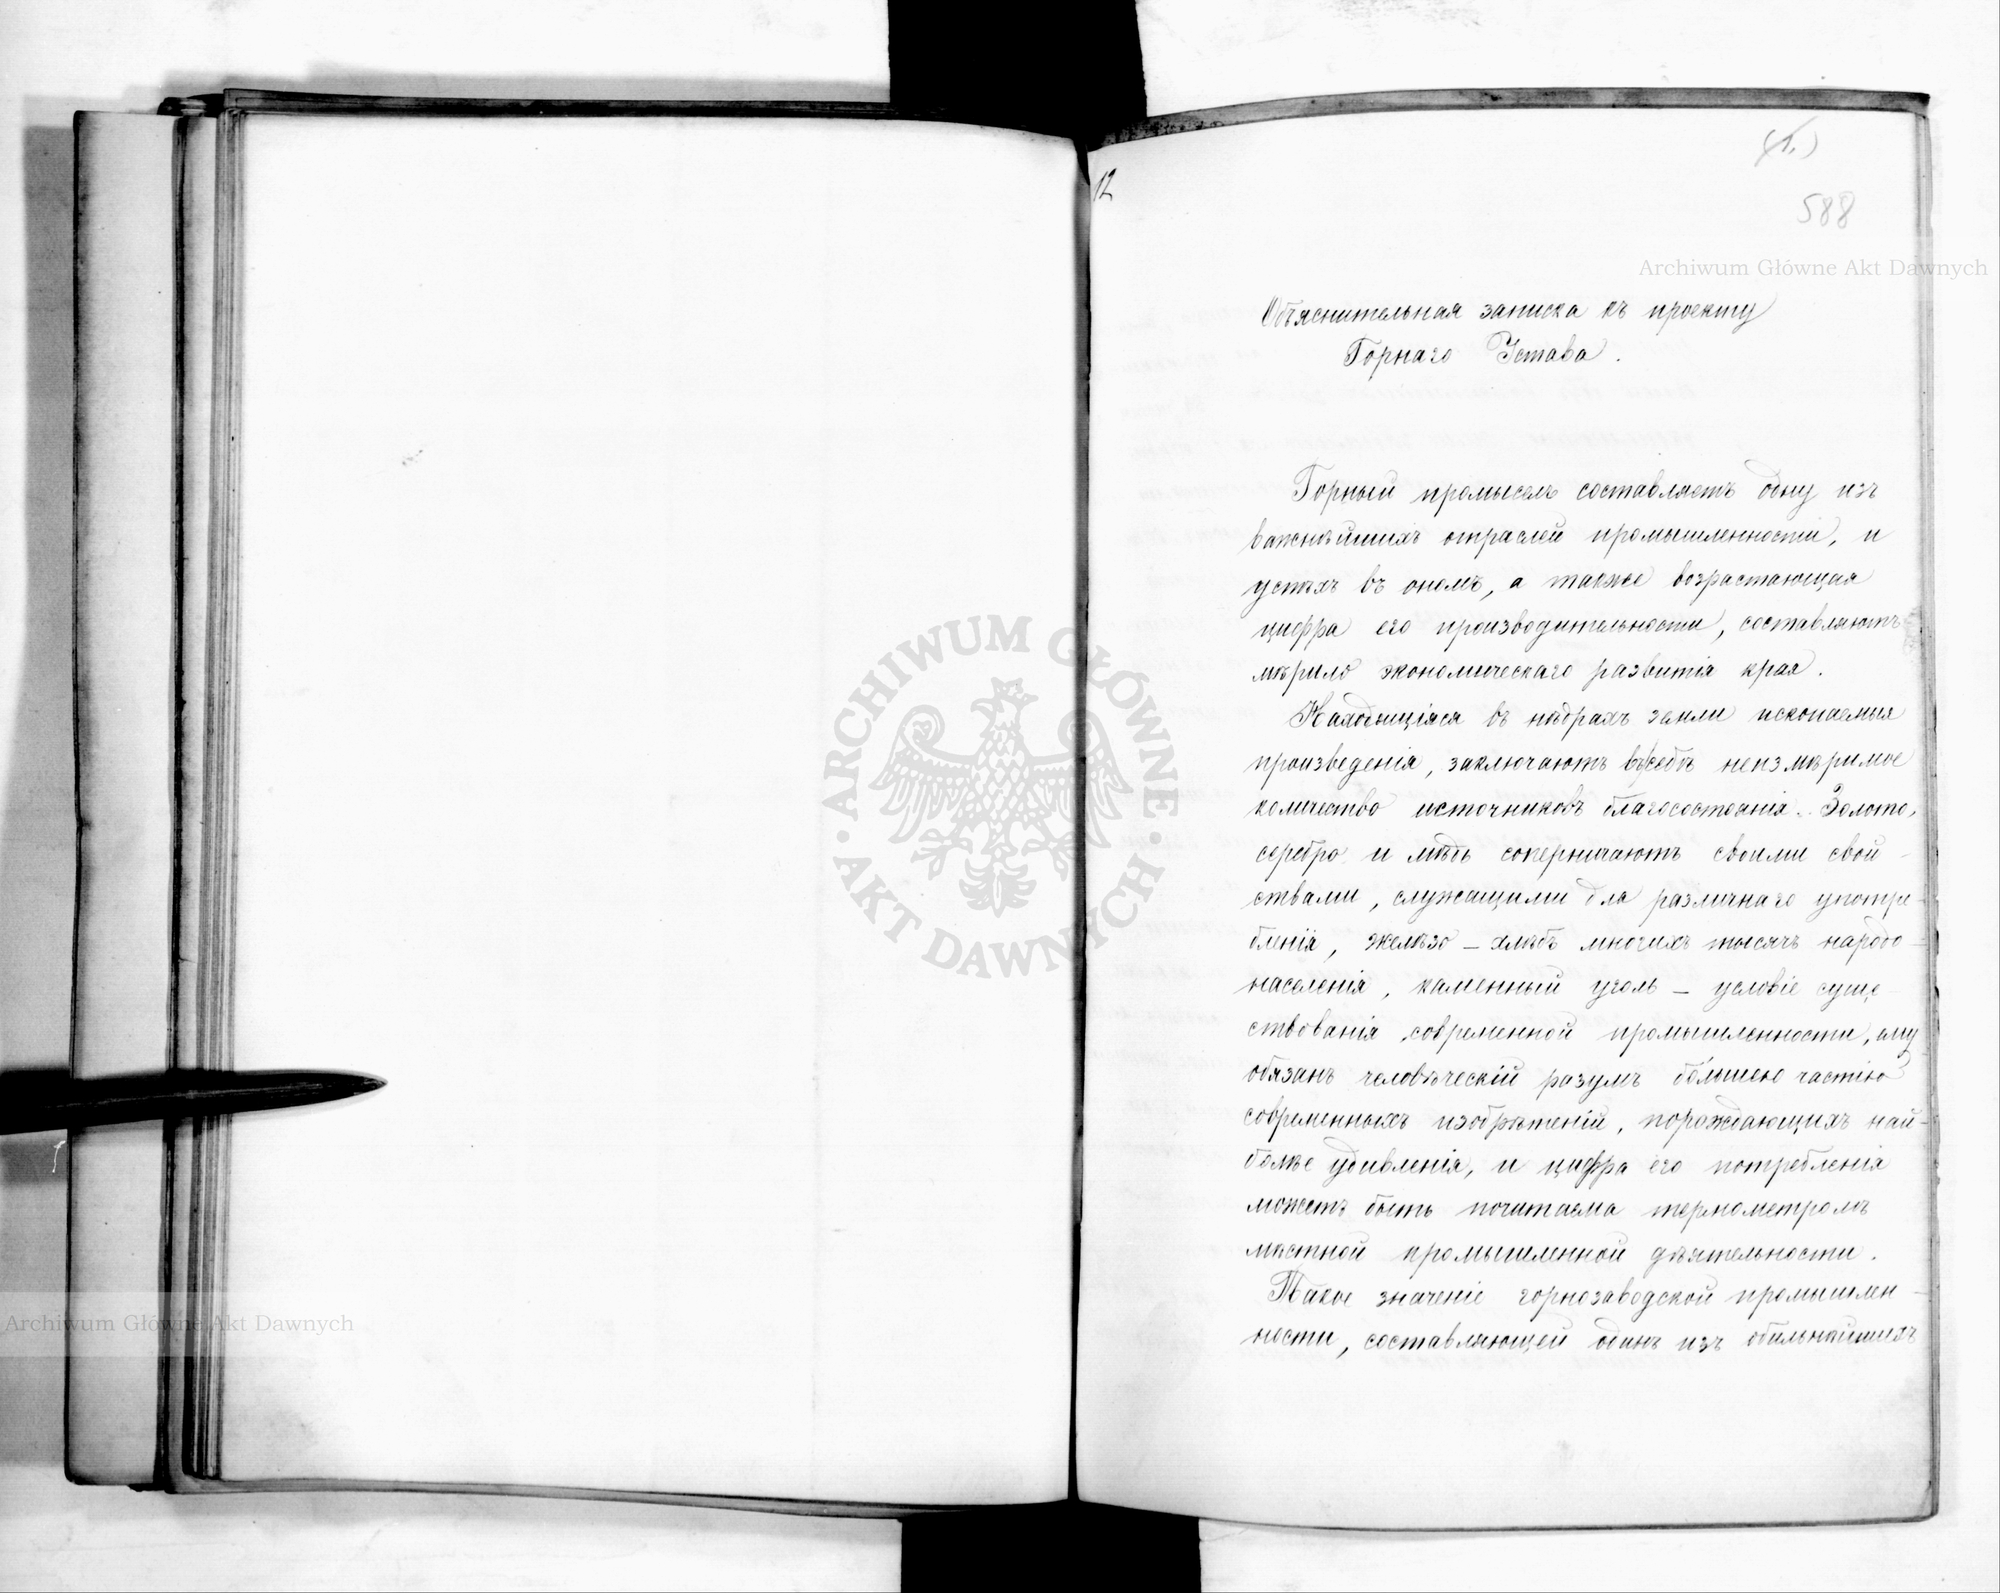 (1.)
12
588
Archiwum Główne Akt Dawnych
Объяснительная записка къ проекту
Горнаго Устава.
Горный промыселъ составляетъ одну изъ
важнѣйшихъ отраслей промышленности, и
успѣхъ въ ономъ, а также возрастающая
цифра его производительности, составляютъ
мѣрило экономическаго развитія края.
Находящіяся въ нѣдрахъ земли ископаемыя
произведенія, заключаютъ въ себѣ неизмѣримое
количество источниковъ благосостоянія. Золото,
серебро и мѣдь соперничаютъ своими свой-
ствами, служащими для различнаго употре-
бленія, желѣзо — хлѣбъ многихъ тысячъ народо-
населенія, каменный уголь — условіе суще-
ствованія современной промышленности, ему
обязанъ человѣческій разумъ большею частію
современныхъ изобрѣтеній, пораждающихъ най-
болѣе удивленія, и цифра его потребленія
можетъ быть почитаема термометромъ
мѣстной промышленной дѣятельности.
Такое значеніе горнозаводской промышлен-
ности, составляющей одинъ изъ обильнѣйшихъ
ARCHIWUM GŁÓWNE
AKT DAWNYCH
Archiwum Główne Akt Dawnych